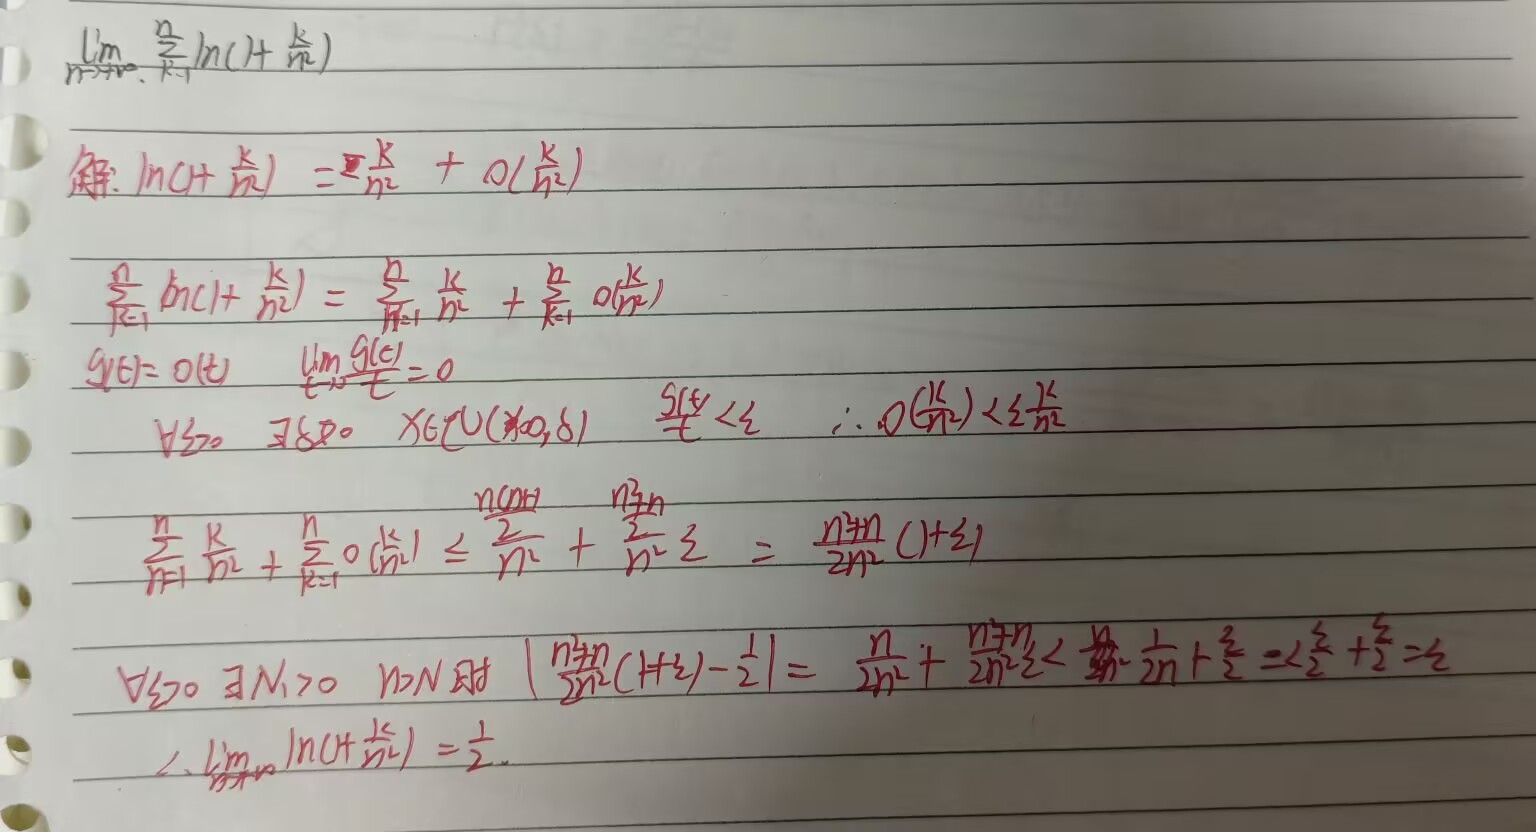 lim n→+∞ Σ_{k=1}^{n} ln(1+ k/n²)
解: ln(1+ k/n²) = k/n² + o(k/n²)
Σ_{k=1}^{n} ln(1+ k/n²) = Σ_{n=1}^{n} k/n² + Σ_{k=1}^{n} o(k/n²)
g(t)= o(t) lim t→0 g(t)/t = 0
∀ε>0 ∃δ>0 x∈U(x0,δ) g(t)/t <ε ∴ o(k/n²) < ε k/n²
Σ_{n=1}^{n} k/n² + Σ_{k=1}^{n} o(k/n²) ≤ (n(n+1)/2)/n² + ((n²+n)/2)/n² ε = (n²+n)/2n² (1+ε)
∀ε>0 ∃N>0 n>N时 |(n²+n)/2n² (1+ε) - 1/2| = n/2n² + (n²+n)/2n² ε < 1/2n + ε/2 < ε/2 + ε/2 = ε
∴ lim n→+∞ ln(1+ k/n²) = 1/2.